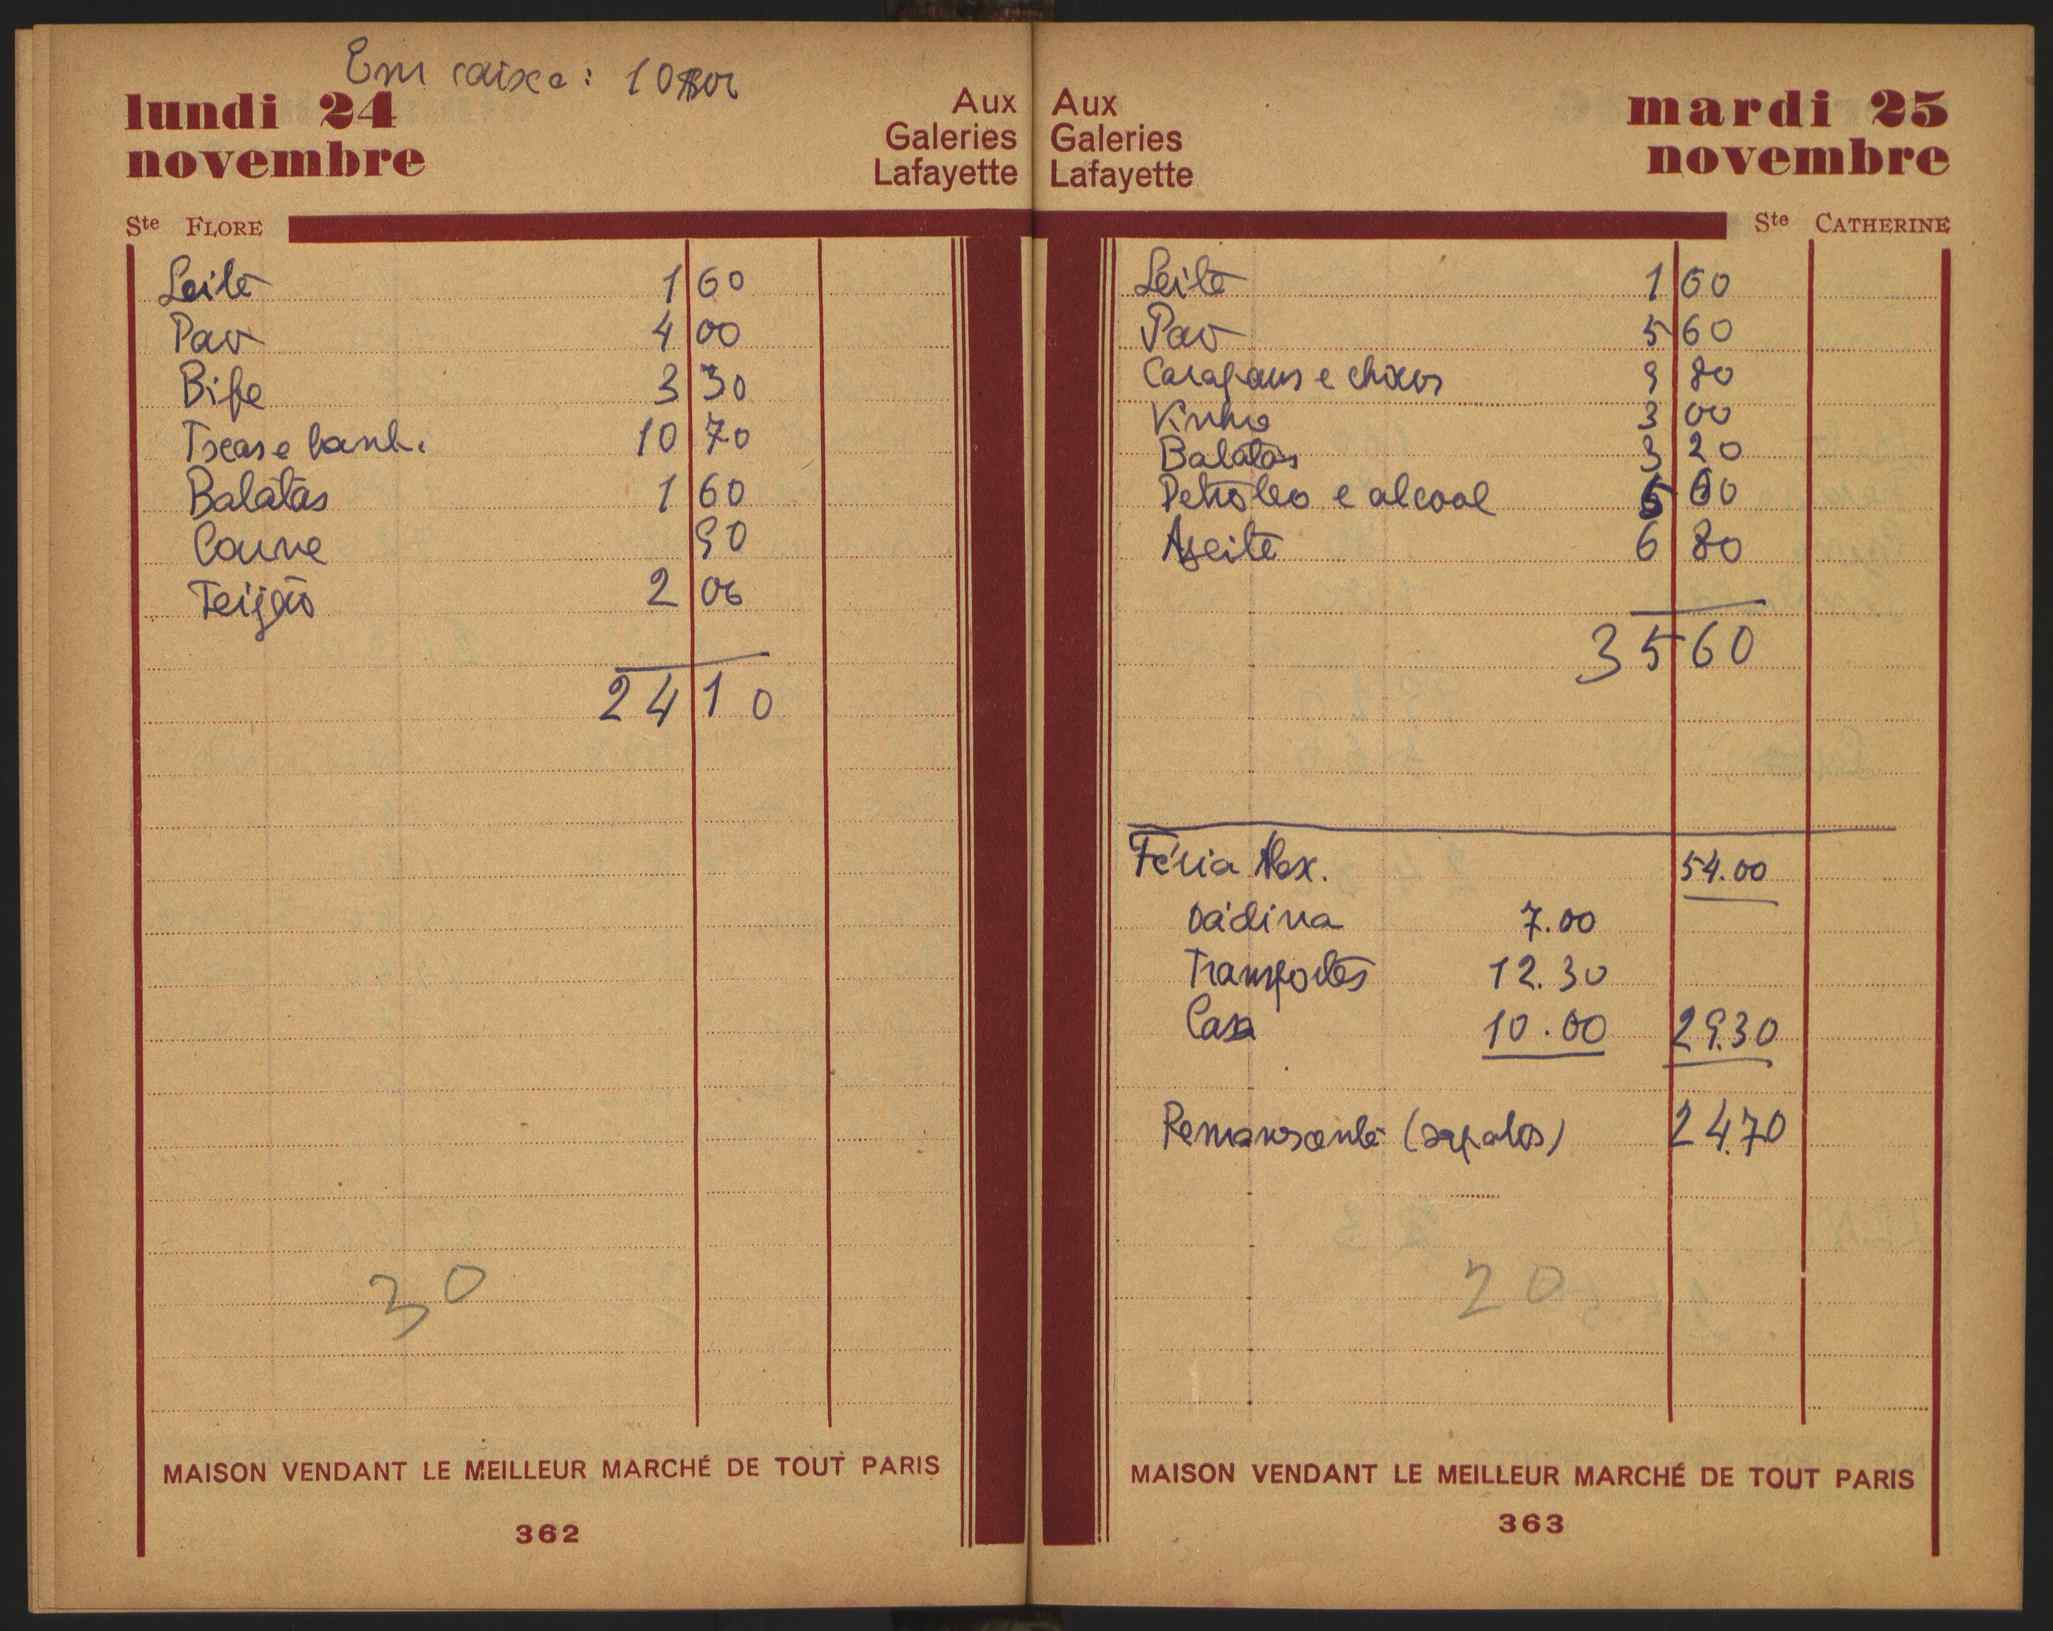 Em caixa: 10
lundi 24
novembre
Aux
Galeries
Lafayette
Ste FLORE
Leite 1 60
Pão 4 00
Bife 3 30
Iscas e banh. 10 70
Batatas 1 60
Couve 90
Feijão 2 00
24 10
30
MAISON VENDANT LE MEILLEUR MARCHÉ DE TOUT PARIS
362
Aux
Galeries
Lafayette
mardi 25
novembre
Ste CATHERINE
Leite 1 60
Pão 5 60
Carapaus e chixos 9 80
Vinho 3 00
Batatas 3 20
Petróleo e alcool 5 60
Azeite 6 80
35 60
Féria Alex. 54.00
Dádiva 7.00
Transportes 12.30
Casa 10.00 29.30
Remanescente (sapatos) 24.70
20
MAISON VENDANT LE MEILLEUR MARCHÉ DE TOUT PARIS
363